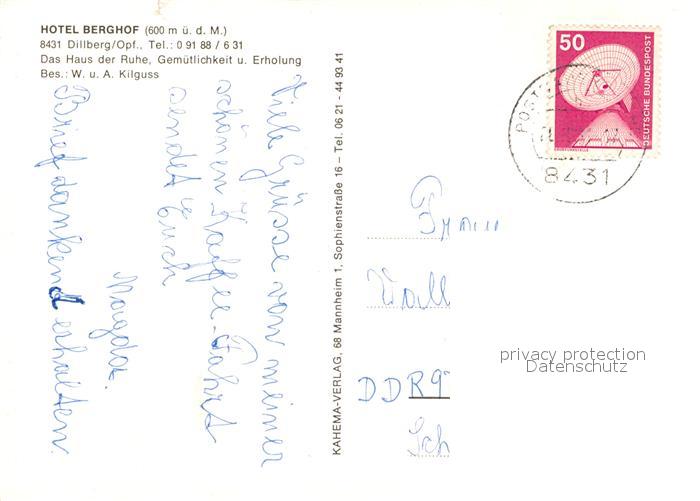 HOTEL BERGHOF (600 m ü. d. M.)
8431 Dillberg/Opf., Tel.: 0 91 88 / 6 31
Das Haus der Ruhe, Gemütlichkeit u. Erholung
Bes.: W. u. A. Kilguss
Viele Grüsse von meiner
schönen Kaffee-Fahrt
sendet Euch
Magda.
Brief dankend erhalten.
KAHEMA-VERLAG, 68 Mannheim 1, Sophienstraße 16 – Tel. 06 21 - 44 93 41
50
DEUTSCHE BUNDESPOST
8431
Wall
DDR 9
Sch
privacy protection
Datenschutz